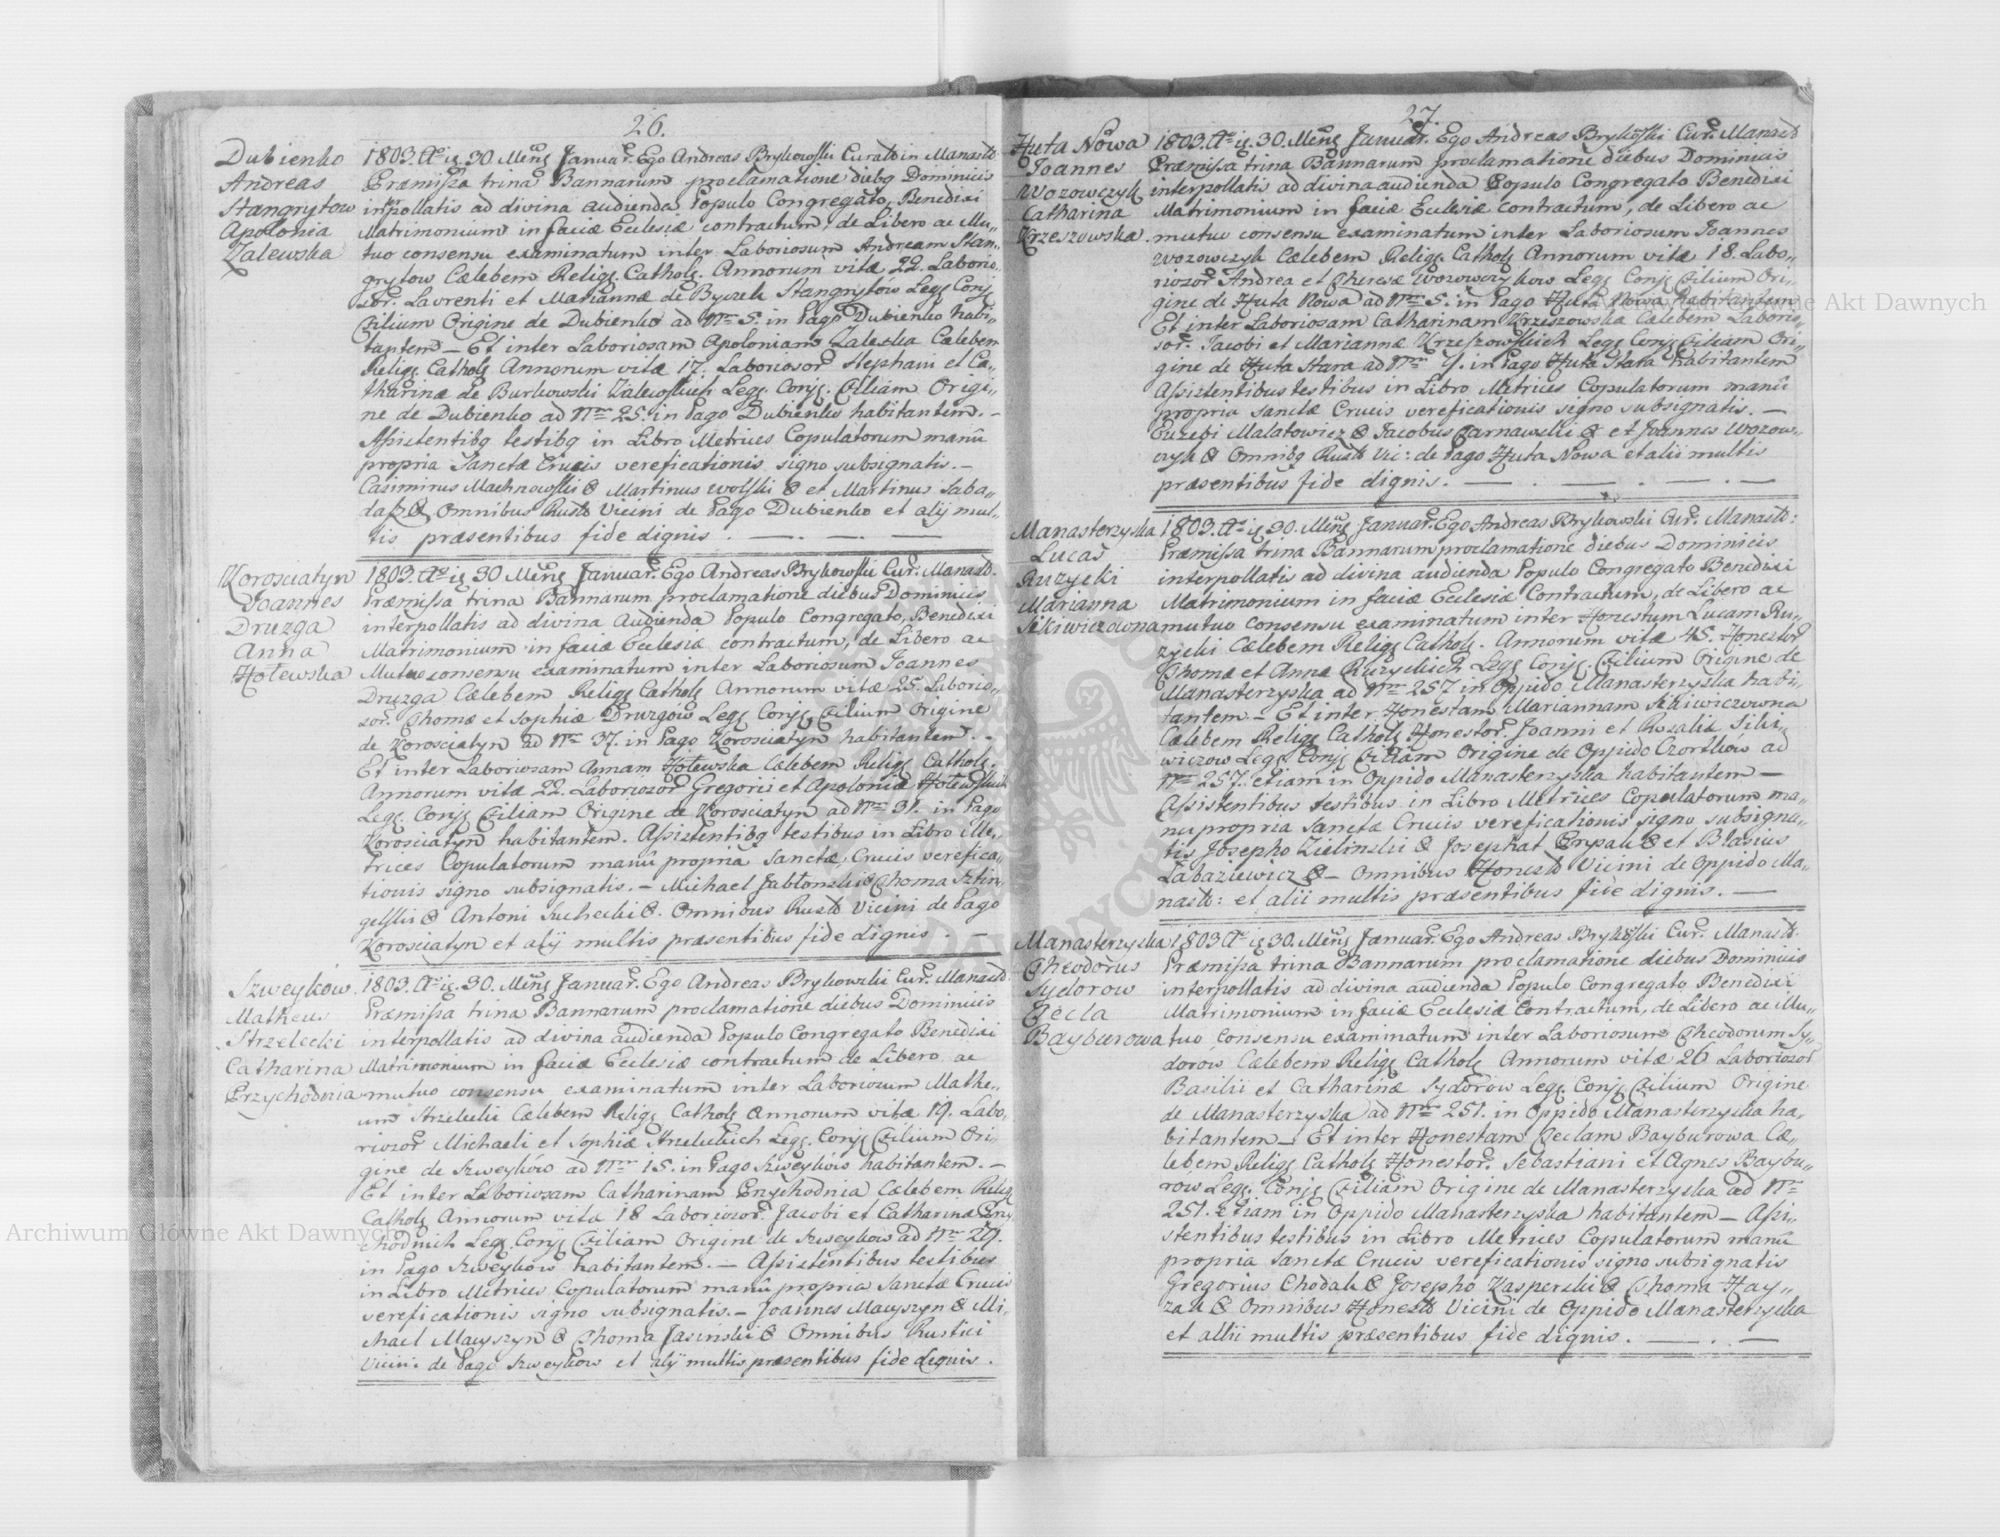 26.
Dubienko
Andreas
Stangrytow
Apolonia
Zalewska
1803. Ao ig 30 Mens Januar. Ego Andreas Brykowski Curato in Manast
Præmissa trina Bannarum proclamatione diebg Dominicis
interpollatis ad divina audienda Populo Congregato, Benedixi
Matrimonium in faciæ Eclesiæ contractum, de Libero ac Mu„
tuo consensu examinatum inter Laboriosum Andream Stan„
grytow Cælebem Relig Cathol. Annorum vitæ 22. Laborio„
sor. Lavrenti et Mariannæ de Byczek Stangrytow Leg Conj
Filium Origine de Dubienko ad Nrm 5. in Pago Dubienko habi„
tantem — Et inter Laboriosam Apoloniam Zaleska Cælebem
Relig Cathol Annorum vitæ 17. Laboriosor Stephani et Ca„
tharinæ de Burkowski Zalewskich Leg. Conj. Filiam Origi„
ne de Dubienko ad Nrm 25. in Pago Dubienko habitantem. —
Assistentibg testibg in Libro Metrices Copulatorum manû
propria Sanctæ Crucis vereficationis signo subsignatis. —
Casimirus Machnowski & Martinus Wolski & et Martinus Saba„
dasz & Omnibus Rust Vicini de Pago Dubienko et alij mul„
tis præsentibus fide dignis . — . — . —
Korosciatyn
Joannes
Druzga
Anna
Hołewska
1803. Ao ig 30 Mens Januar. Ego Andreas Brykowski Cur. Manast.
Præmissa trina Bannarum proclamatione diebus Dominicis
interpollatis ad divina Audienda Populo Congregato, Benedixi
Matrimonium in faciæ Eclesiæ contractum, de Libero ac
Mutuo consensu examinatum inter Laboriosum Joannes
Druzga Cælebem Relig Cathol Annorum vitæ 25. Laborio„
sor. Thomæ et Sophiæ Druzgow Leg Conj. Filium Origine
de Korosciatyn ad Nrm 37. in Pago Korosciatyn habitantem. —
Et inter Laboriosam Annam Hołewska Cælebem Relig Cathol.
Annorum vitæ 22. Laboriosor Gregorii et Apoloniæ Hołewskich
Leg. Conj Filiam Origine de Korosciatyn ad Nrm 31. in Pago
Korosciatyn habitantem. Assistentibg testibus in Libro Me„
trices Copulatorum manû propria Sanctæ Crucis verefica„
tionis signo subsignatis. — Michael Jabłonski & Thoma Sztin„
gelski & Antoni Suchecki &. Omnibus Rust Vicini de Pago
Korosciatyn et alij multis præsentibus fide dignis . —
Szweyków.
Matheus
Strzelecki
Catharina
Przychodnia
1803. Ao ig. 30. Mens Januar. Ego Andreas Brykowzki Cur. Manast
Præmissa trina Bannarum proclamatione diebus Dominicis
interpollatis ad divina audienda Populo Congregato Benedixi
Matrimonium in faciæ Eclesiæ contractum de Libero ac
mutuo consensu examinatum inter Laboriosum Mathe„
um Strzelecki Cælebem Relig Cathol Annorum vitæ 19. Labo„
riozor Michaeli et Sophiæ Strzeleckich Leg. Conj Filium Ori„
gine de Szweyków ad Nrm 15. in Pago Szweyków habitantem. —
Et inter Laboriosam Catharinam Przychodnia Cælebem Relig
Cathol Annorum vita 18 Laboriozor. Jacobi et Catharinæ Przy
chodnich Leg Conj Filiam Origine de Szweykow ad Nrm 29.
in Pago Szweyków habitantem. — Assistentibus testibus
in Libro Metrices Copulatorum manû propria Sanctæ Crucis
vereficationis signo subsignatis. — Joannes Mauszyn & Mi„
chael Mauszyn & Thoma Jasinski & Omnibus Rustici
Vicini de Pago Szweykow et alij multis præsentibus fide dignis .
27.
Huta Nowa
Joannes
Wozowczyk
Catharina
Krzeszowska.
1803. Ao ig 30. Mens Januar. Ego Andreas Brykowski Cur. Manast
Præmissa trina Bannarum proclamatione diebus Dominicis
interpollatis ad divina audienda Populo Congregato Benedixi
Matrimonium in faciæ Eclesiæ contractum, de Libero ac
mutuo consensu examinatum inter Laboriosum Joannes
Wozowczyk Cælebem Relig. Cathol Annorum vitæ 18. Labo„
riozor Andrea et Theresæ Wozowczykow Leg Conj Filium Ori„
gine de Huta Nowa ad Nrm 5. in Pago Huta Nowa habitantem
Et inter Laboriosam Catharinam Krzeszowska Cælebem Laborio„
sor. Jacobi et Mariannæ Krzeszowskich Leg Conj Filiam Ori„
gine de Huta Stara ad Nrm 7. in Pago Huta Stara habitantem
Assistentibus testibus in Libro Metrices Copulatorum manû
propria sanctæ Crucis vereficationis signo subsignatis. —
Euzebi Malatowicz & Jacobus Czarnawski & et Joannes Wozow„
czyk & Omnibg Rust Vic: de Pago Huta Nowa et alii multis
præsentibus fide dignis. — . — . — . —
Manasterzyska
Lucas
Ruzycki
Marianna
Sikiwiczowna
1803. Ao ig. 30. Mens Januar. Ego Andreas Brykowski Cur. Manast:
Præmissa trina Bannarum proclamatione diebus Dominicis
interpollatis ad divina audienda Populo Congregato Benedixi
Matrimonium in faciæ Eclesiæ Contractum, de Libero ac
mutuo consensu examinatum inter Honestum Lucam Ru„
zycki Cælebem Relig Cathol. Annorum vitæ 45. Honestor
Thomæ et Annæ Ruzyckich Leg. Conj. Filium Origine de
Manasterzyska ad Nrm 257 in Oppido Manasterzyska habi„
tantem — Et inter Honestam Mariannam Sikiwiczowna
Cælebem Relig Cathol Honestor. Joanni et Rosaliæ Siki„
wiczow Leg Conj Filiam Origine de Oppido Czortków ad
Nrm 257. etiam in Oppido Manasterzyska habitantem —
Assistentibus testibus in Libro Metrices Copulatorum ma„
nu propria Sanctæ Crucis vereficationis signo subsigna„
tis Josepho Zielinski & Josephat Prysak & et Blasius
Labaziewicz & — Omnibus Honest Vicini de Oppido Ma„
nast: et alii multis præsentibus fide dignis. —
Manasterzyska
Theodorus
Sydorow
Tecla
Bayburowa
1803 Ao ig. 30. Mens Januar. Ego Andreas Brykowski Cur. Manast.
Præmissa trina Bannarum proclamatione diebus Dominicis
interpollatis ad divina audienda Populo Congregato Benedixi
Matrimonium in faciæ Eclesiæ Contractum, de Libero ac Mu„
tuo Consensu examinatum inter Laboriosum Theodorum Sy„
dorow Cælebem Relig Cathol Annorum vitæ 26 Laboriozor
Basilii et Catharinæ Sydorow Leg Conj Filium Origine
de Manasterzyska ad Nrm 251. in Oppido Manasterzyska ha„
bitantem — Et inter Honestam Teclam Bayburowa Cæ„
lebem Relig Cathol Honestor. Sebastiani et Agnes Baybu„
row Leg. Conj Filiam Origine de Manasterzyska ad Nrm
251. Etiam in Oppido Manasterzyska habitantem — Assi„
stentibus testibus in Libro Metrices Copulatorum manû
propria Sanctæ Crucis vereficationis signo subsignatis
Gregorius Chodak & Josepho Kasperski & Thoma Hay„
zak & Omnibus Honest Vicini de Oppido Manasterzyska
et allii multis præsentibus fide dignis. — . —
Archiwum Główne Akt Dawnych
Archiwum Główne Akt Dawnych